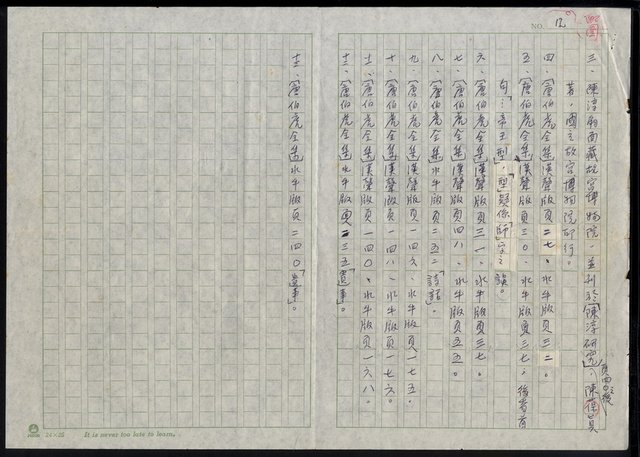 NO. 12
三、陳淳的畫藏故宮博物院，並刊於「陳淳研究」，頁四〇後，陳葆真
著，國立故宮博物院印行。
四、「唐伯虎全集」漢聲版頁二七、水牛版頁三二。
五、「唐伯虎全集」漢聲版頁三〇、水牛版頁三七，後者首
句「…辛丑型」，「型」疑係「師」字之誤。
六、「唐伯虎全集」漢聲版頁三一、水牛版頁三七。
七、「唐伯虎全集」漢聲版頁四八、水牛版頁五五。
八、「唐伯虎全集」水牛版頁二五二「詩話」。
九、「唐伯虎全集」漢聲版頁一四六、水牛版頁一七五。
十、「唐伯虎全集」漢聲版頁一四八、水牛版頁一七六。
十一、「唐伯虎全集」漢聲版頁一四〇、水牛版頁一六八。
十二、「唐伯虎全集」水牛版頁二三五「遺事」。
十三、「唐伯虎全集」水牛版頁二四〇「遺事」。
24×25 It is never too late to learn.